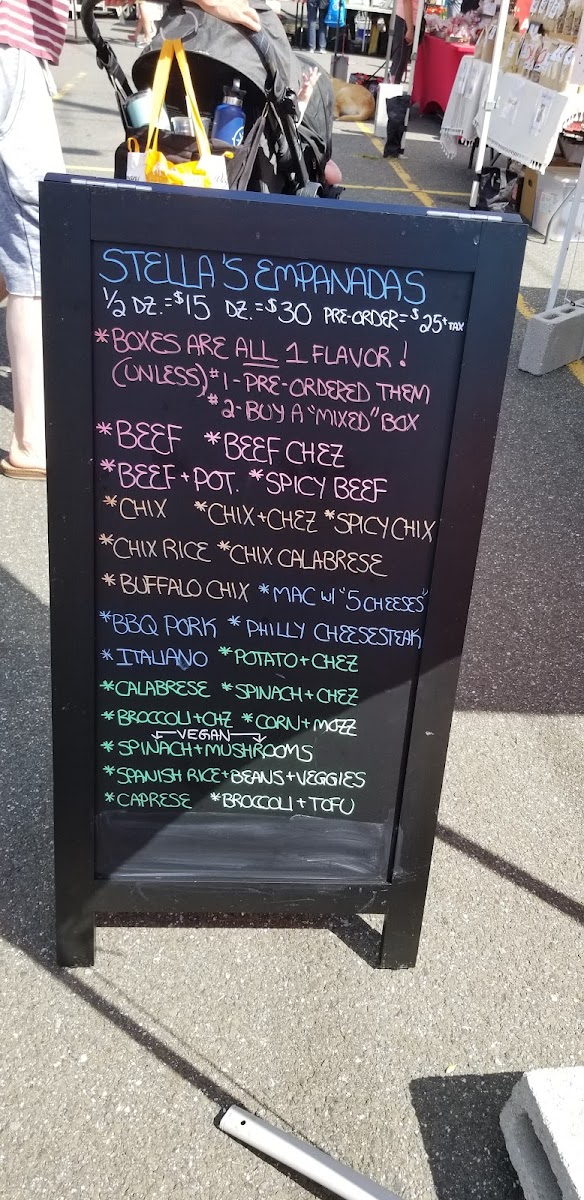 STELLA'S EMPANADAS
1/2 DZ.=$15 DZ.=$30 PRE-ORDER=$25+TAX
*BOXES ARE ALL 1 FLAVOR!
(UNLESS) #1-PRE-ORDERED THEM
#2-BUY A "MIXED" BOX
*BEEF *BEEF CHEZ
*BEEF+POT. *SPICY BEEF
*CHIX *CHIX+CHEZ *SPICY CHIX
*CHIX RICE *CHIX CALABRESE
*BUFFALO CHIX *MAC W/ "5 CHEESES"
*BBQ PORK *PHILLY CHEESESTEAK
*ITALIANO *POTATO+CHEZ
*CALABRESE *SPINACH+CHEZ
*BROCCOLI+CHZ *CORN+MOZZ
VEGAN
*SPINACH+MUSHROOMS
*SPANISH RICE+BEANS+VEGGIES
*CAPRESE *BROCCOLI+TOFU